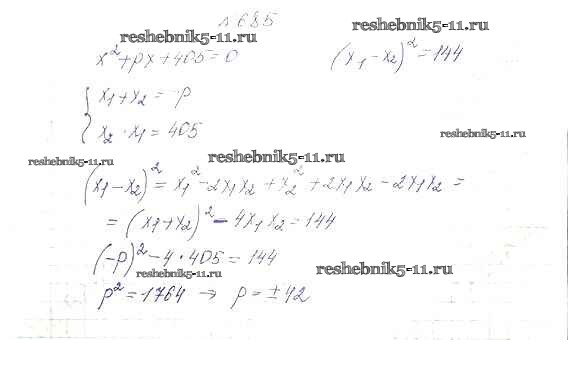 № 685
reshebnik5-11.ru
reshebnik5-11.ru
x²+px+405=0 (x₁-x₂)²=144
x₁+x₂=-p
x₂·x₁=405
reshebnik5-11.ru
reshebnik5-11.ru
reshebnik5-11.ru
(x₁-x₂)²=x₁²-2x₁x₂+x₂²+2x₁x₂-2x₁x₂=
=(x₁+x₂)²-4x₁x₂=144
(-p)²-4·405=144
reshebnik5-11.ru
reshebnik5-11.ru
p²=1764 → p=±42